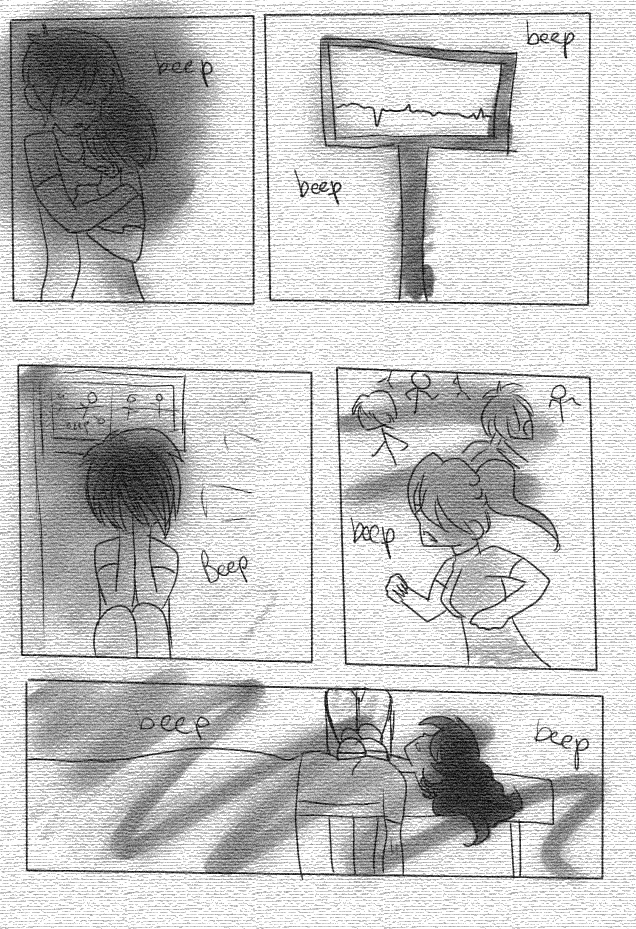 beep
beep
beep
Beep
beep
beep
beep